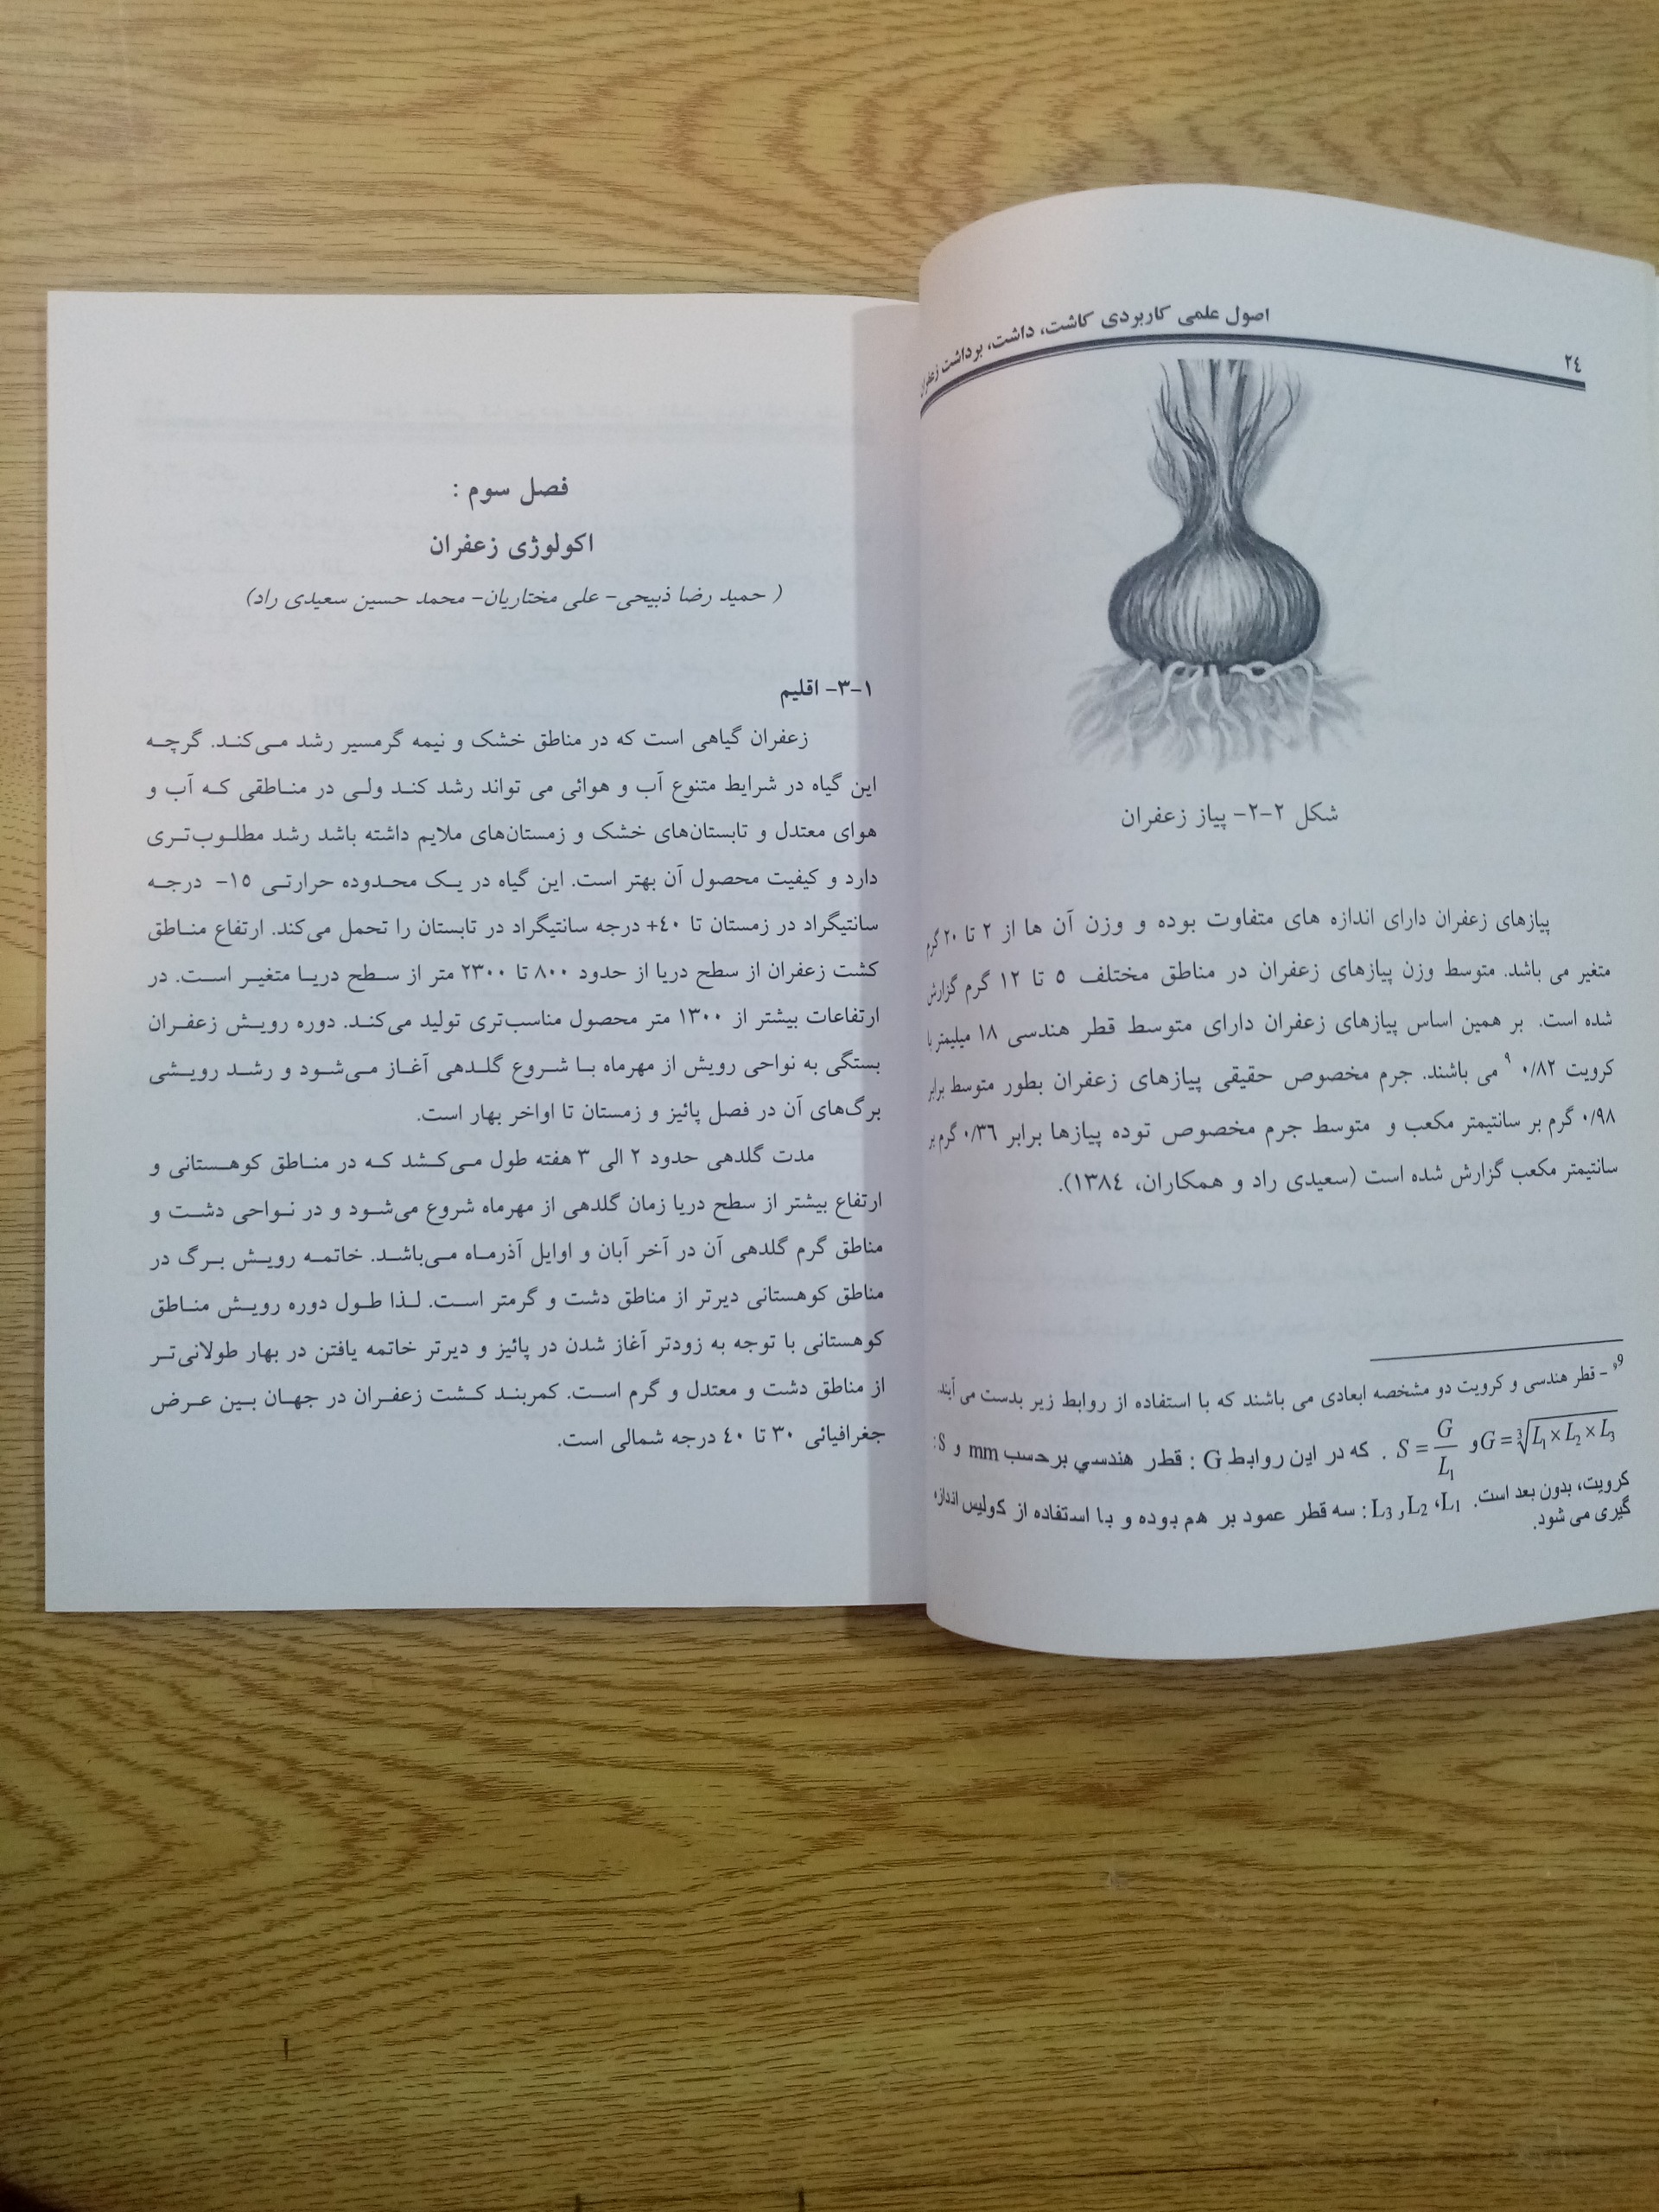 اصول علمی کاربردی کاشت، داشت، برداشت زعفران
٢٤
شکل ٢-٢- پیاز زعفران
پیازهای زعفران دارای اندازه های متفاوت بوده و وزن آن ها از ٢ تا ٢٠ گرم
متغیر می باشد. متوسط وزن پیازهای زعفران در مناطق مختلف ٥ تا ١٢ گرم گزارش
شده است. بر همین اساس پیازهای زعفران دارای متوسط قطر هندسی ١٨ میلیمتر با
کرویت ٠/٨٢ ٩ می باشند. جرم مخصوص حقیقی پیازهای زعفران بطور متوسط برابر
٠/٩٨ گرم بر سانتیمتر مکعب و متوسط جرم مخصوص توده پیازها برابر ٠/٣٦ گرم بر
سانتیمتر مکعب گزارش شده است (سعیدی راد و همکاران، ١٣٨٤).
٩ - قطر هندسی و کرویت دو مشخصه ابعادی می باشند که با استفاده از روابط زیر بدست می آیند.
G = ∛(L₁ × L₂ × L₃) و S = G/L₁ . که در این روابط G : قطر هندسی برحسب mm و S:
کرویت، بدون بعد است. L₁، L₂ و L₃ : سه قطر عمود بر هم بوده و با استفاده از کولیس اندازه
گیری می شود.
فصل سوم :
اکولوژی زعفران
( حمید رضا ذبیحی- علی مختاریان- محمد حسین سعیدی راد)
١-٣- اقلیم
زعفران گیاهی است که در مناطق خشک و نیمه گرمسیر رشد می‌کند. گرچه
این گیاه در شرایط متنوع آب و هوائی می تواند رشد کند ولی در مناطقی که آب و
هوای معتدل و تابستان‌های خشک و زمستان‌های ملایم داشته باشد رشد مطلوب‌تری
دارد و کیفیت محصول آن بهتر است. این گیاه در یک محدوده حرارتی ١٥- درجه
سانتیگراد در زمستان تا ٤٠+ درجه سانتیگراد در تابستان را تحمل می‌کند. ارتفاع مناطق
کشت زعفران از سطح دریا از حدود ٨٠٠ تا ٢٣٠٠ متر از سطح دریا متغیر است. در
ارتفاعات بیشتر از ١٣٠٠ متر محصول مناسب‌تری تولید می‌کند. دوره رویش زعفران
بستگی به نواحی رویش از مهرماه با شروع گلدهی آغاز می‌شود و رشد رویشی
برگ‌های آن در فصل پائیز و زمستان تا اواخر بهار است.
مدت گلدهی حدود ٢ الی ٣ هفته طول می‌کشد که در مناطق کوهستانی و
ارتفاع بیشتر از سطح دریا زمان گلدهی از مهرماه شروع می‌شود و در نواحی دشت و
مناطق گرم گلدهی آن در آخر آبان و اوایل آذرماه می‌باشد. خاتمه رویش برگ در
مناطق کوهستانی دیرتر از مناطق دشت و گرمتر است. لذا طول دوره رویش مناطق
کوهستانی با توجه به زودتر آغاز شدن در پائیز و دیرتر خاتمه یافتن در بهار طولانی‌تر
از مناطق دشت و معتدل و گرم است. کمربند کشت زعفران در جهان بین عرض
جغرافیائی ٣٠ تا ٤٠ درجه شمالی است.